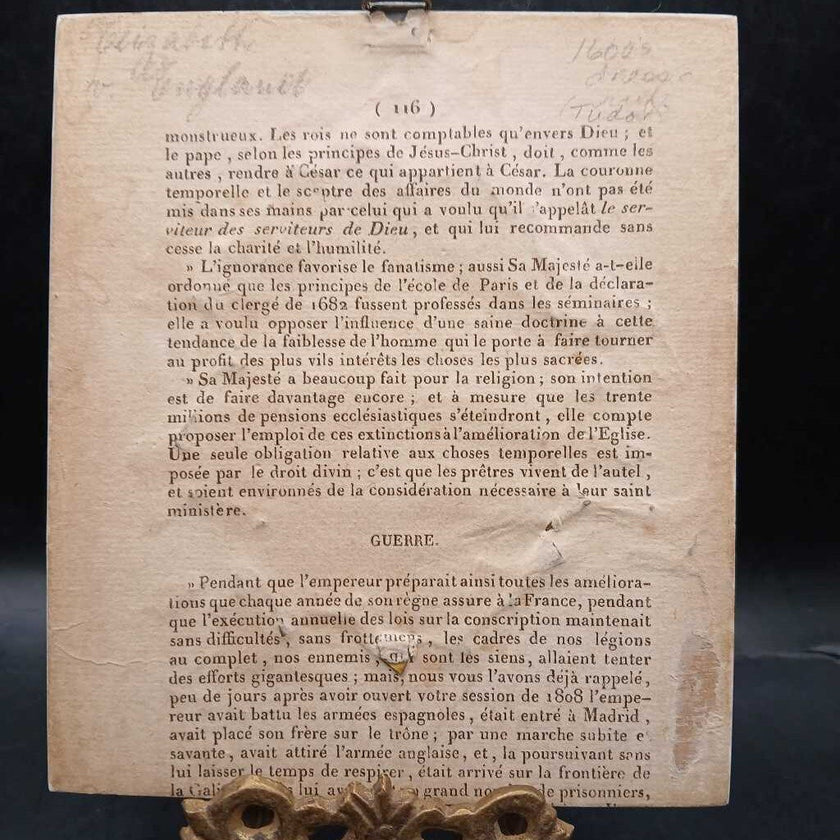 Elizabeth
v. England
1600's
dress
Tudor
( 116 )
monstrueux. Les rois ne sont comptables qu'envers Dieu ; et
le pape , selon les principes de Jésus-Christ , doit , comme les
autres , rendre à César ce qui appartient à César. La couronne
temporelle et le sceptre des affaires du monde n'ont pas été
mis dans ses mains par celui qui a voulu qu'il s'appelât le ser-
viteur des serviteurs de Dieu , et qui lui recommande sans
cesse la charité et l'humilité.
» L'ignorance favorise le fanatisme ; aussi Sa Majesté a-t-elle
ordonné que les principes de l'école de Paris et de la déclara-
tion du clergé de 1682 fussent professés dans les séminaires ;
elle a voulu opposer l'influence d'une saine doctrine à cette
tendance de la faiblesse de l'homme qui le porte à faire tourner
au profit des plus vils intérêts les choses les plus sacrées.
» Sa Majesté a beaucoup fait pour la religion ; son intention
est de faire davantage encore ; et à mesure que les trente
millions de pensions ecclésiastiques s'éteindront , elle compte
proposer l'emploi de ces extinctions à l'amélioration de l'Eglise.
Une seule obligation relative aux choses temporelles est im-
posée par le droit divin ; c'est que les prêtres vivent de l'autel ,
et soient environnés de la considération nécessaire à leur saint
ministère.
GUERRE.
» Pendant que l'empereur préparait ainsi toutes les améliora-
tions que chaque année de son règne assure à la France, pendant
que l'exécution annuelle des lois sur la conscription maintenait
sans difficultés , sans frottemens , les cadres de nos légions
au complet , nos ennemis , qui sont les siens, allaient tenter
des efforts gigantesques ; mais, nous vous l'avons déjà rappelé,
peu de jours après avoir ouvert votre session de 1808 l'empe-
reur avait battu les armées espagnoles , était entré à Madrid ,
avait placé son frère sur le trône ; par une marche subite et
savante , avait attiré l'armée anglaise , et , la poursuivant sans
lui laisser le temps de respirer , était arrivé sur la frontière de
la lui grand de prisonniers,